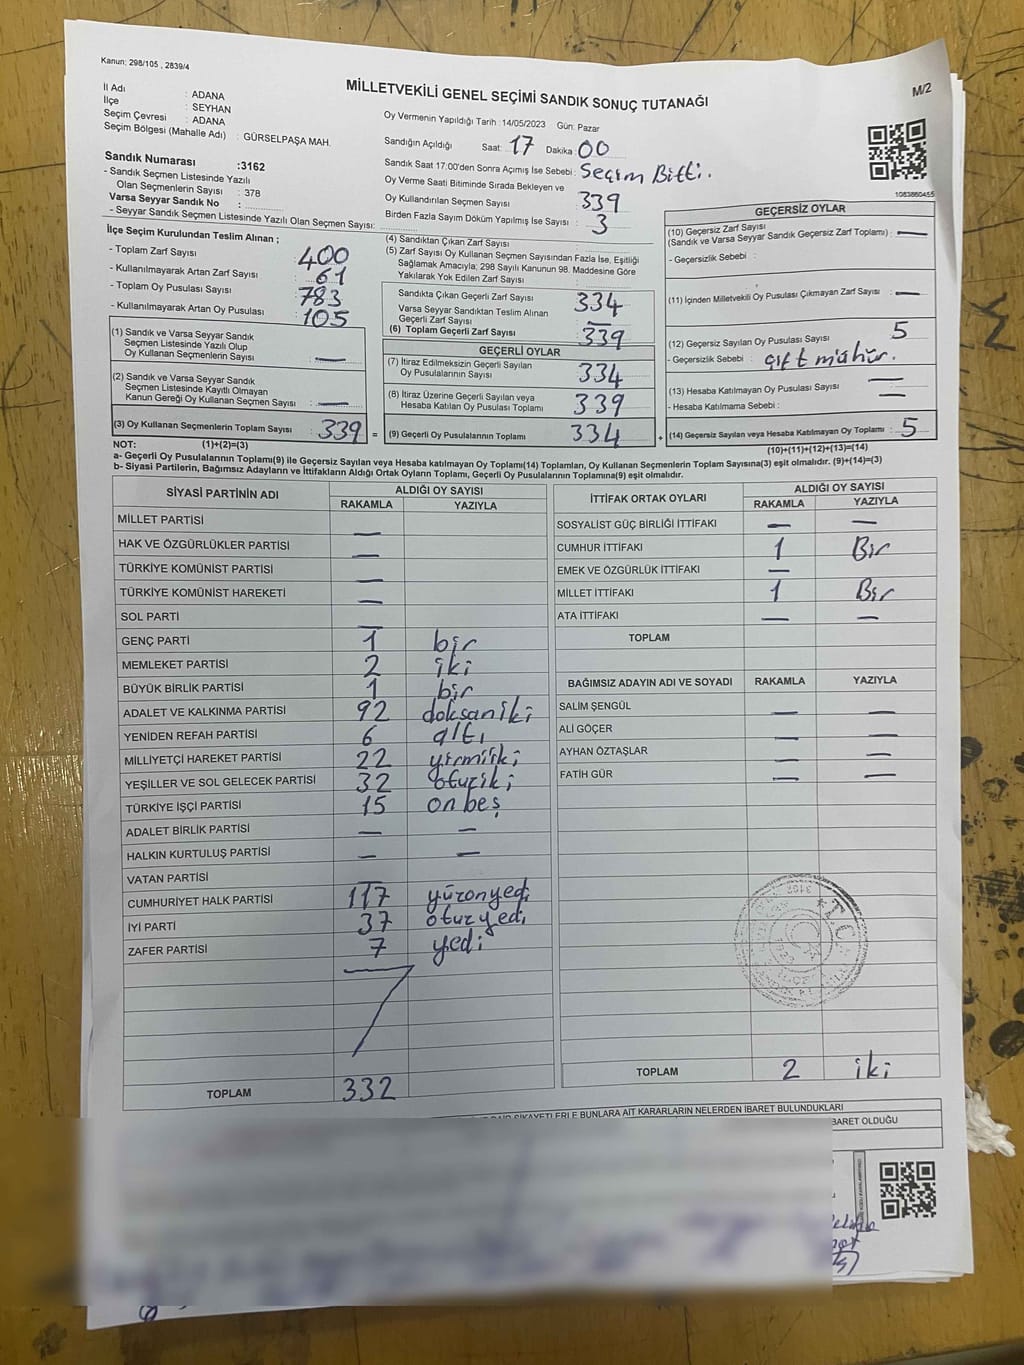 Kanun; 298/105 , 2839/4
M/2
MİLLETVEKİLİ GENEL SEÇİMİ SANDIK SONUÇ TUTANAĞI
İl Adı : ADANA
İlçe : SEYHAN
Seçim Çevresi : ADANA
Seçim Bölgesi (Mahalle Adı) : GÜRSELPAŞA MAH.
Sandık Numarası :3162
- Sandık Seçmen Listesinde Yazılı
Olan Seçmenlerin Sayısı : 378
Varsa Seyyar Sandık No :
- Seyyar Sandık Seçmen Listesinde Yazılı Olan Seçmen Sayısı:
Oy Vermenin Yapıldığı Tarih :14/05/2023 Gün: Pazar
Sandığın Açıldığı Saat: 17 Dakika: 00
Sandık Saat 17:00'den Sonra Açımış İse Sebebi : Seçim Bitti.
Oy Verme Saati Bitiminde Sırada Bekleyen ve
Oy Kullandırılan Seçmen Sayısı : 339
Birden Fazla Sayım Döküm Yapılmış İse Sayısı : 3
1083860455
İlçe Seçim Kurulundan Teslim Alınan ;
- Toplam Zarf Sayısı : 400
- Kullanılmayarak Artan Zarf Sayısı : 61
- Toplam Oy Pusulası Sayısı : 783
- Kullanılmayarak Artan Oy Pusulası : 105
(1) Sandık ve Varsa Seyyar Sandık
Seçmen Listesinde Yazılı Olup
Oy Kullanan Seçmenlerin Sayısı : —
(2) Sandık ve Varsa Seyyar Sandık
Seçmen Listesinde Kayıtlı Olmayan
Kanun Gereği Oy Kullanan Seçmen Sayısı : —
(3) Oy Kullanan Seçmenlerin Toplam Sayısı : 339 =
(4) Sandıktan Çıkan Zarf Sayısı :
(5) Zarf Sayısı Oy Kullanan Seçmen Sayısından Fazla İse, Eşitliği
Sağlamak Amacıyla; 298 Sayılı Kanunun 98. Maddesine Göre
Yakılarak Yok Edilen Zarf Sayısı :
Sandıkta Çıkan Geçerli Zarf Sayısı : 334
Varsa Seyyar Sandıktan Teslim Alınan
Geçerli Zarf Sayısı : —
(6) Toplam Geçerli Zarf Sayısı : 339
GEÇERLİ OYLAR
(7) İtiraz Edilmeksizin Geçerli Sayılan
Oy Pusulalarının Sayısı : 334
(8) İtiraz Üzerine Geçerli Sayılan veya
Hesaba Katılan Oy Pusulası Toplamı : 339
(9) Geçerli Oy Pusulalarının Toplamı : 334 +
GEÇERSİZ OYLAR
(10) Geçersiz Zarf Sayısı
(Sandık ve Varsa Seyyar Sandık Geçersiz Zarf Toplamı) : —
- Geçersizlik Sebebi :
(11) İçinden Milletvekili Oy Pusulası Çıkmayan Zarf Sayısı : —
(12) Geçersiz Sayılan Oy Pusulası Sayısı : 5
- Geçersizlik Sebebi : çift mühür.
(13) Hesaba Katılmayan Oy Pusulası Sayısı : —
- Hesaba Katılmama Sebebi : —
(14) Geçersiz Sayılan veya Hesaba Katılmayan Oy Toplamı : 5
NOT: (1)+(2)=(3)
(10)+(11)+(12)+(13)=(14)
a- Geçerli Oy Pusulaların Toplamı(9) ile Geçersiz Sayılan veya Hesaba katılmayan Oy Toplamı(14) Toplamları, Oy Kullanan Seçmenlerin Toplam Sayısına(3) eşit olmalıdır. (9)+(14)=(3)
b- Siyasi Partilerin, Bağımsız Adayların ve İttifakların Aldığı Ortak Oyların Toplamı, Geçerli Oy Pusulalarının Toplamına(9) eşit olmalıdır.
SİYASİ PARTİNİN ADI ALDIĞI OY SAYISI
RAKAMLA YAZIYLA
MİLLET PARTİSİ —
HAK VE ÖZGÜRLÜKLER PARTİSİ —
TÜRKİYE KOMÜNİST PARTİSİ —
TÜRKİYE KOMÜNİST HAREKETİ —
SOL PARTİ —
GENÇ PARTİ 1 bir
MEMLEKET PARTİSİ 2 iki
BÜYÜK BİRLİK PARTİSİ 1 bir
ADALET VE KALKINMA PARTİSİ 92 doksaniki
YENİDEN REFAH PARTİSİ 6 altı
MİLLİYETÇİ HAREKET PARTİSİ 22 yirmiiki
YEŞİLLER VE SOL GELECEK PARTİSİ 32 otuziki
TÜRKİYE İŞÇİ PARTİSİ 15 onbeş
ADALET BİRLİK PARTİSİ — —
HALKIN KURTULUŞ PARTİSİ — —
VATAN PARTİSİ —
CUMHURİYET HALK PARTİSİ 117 yüzonyedi
İYİ PARTİ 37 otuzyedi
ZAFER PARTİSİ 7 yedi
TOPLAM 332
İTTİFAK ORTAK OYLARI ALDIĞI OY SAYISI
RAKAMLA YAZIYLA
SOSYALİST GÜÇ BİRLİĞİ İTTİFAKI — —
CUMHUR İTTİFAKI 1 Bir
EMEK VE ÖZGÜRLÜK İTTİFAKI —
MİLLET İTTİFAKI 1 Bir
ATA İTTİFAKI — —
TOPLAM
BAĞIMSIZ ADAYIN ADI VE SOYADI RAKAMLA YAZIYLA
SALİM ŞENGÜL — —
ALİ GÖÇER — —
AYHAN ÖZTAŞLAR — —
FATİH GÜR — —
T.C.
TOPLAM 2 iki
ŞİKAYETLERLE BUNLARA AİT KARARLARIN NELERDEN İBARET BULUNDUKLARI
BARET OLDUĞU